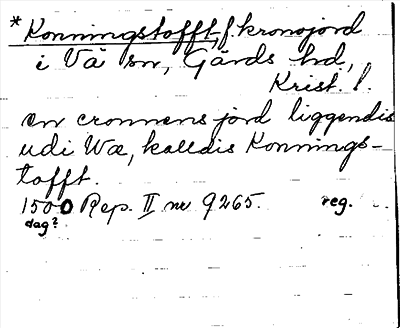 *Konningstofft, f. kronojord
i Vä sn, Gärds hd,
Krist. l.
en cronnens jord liggendis
udi Wæ, kaldis Konnings-
tofft.
1500 Rep. II nr 9265. reg.
dag?